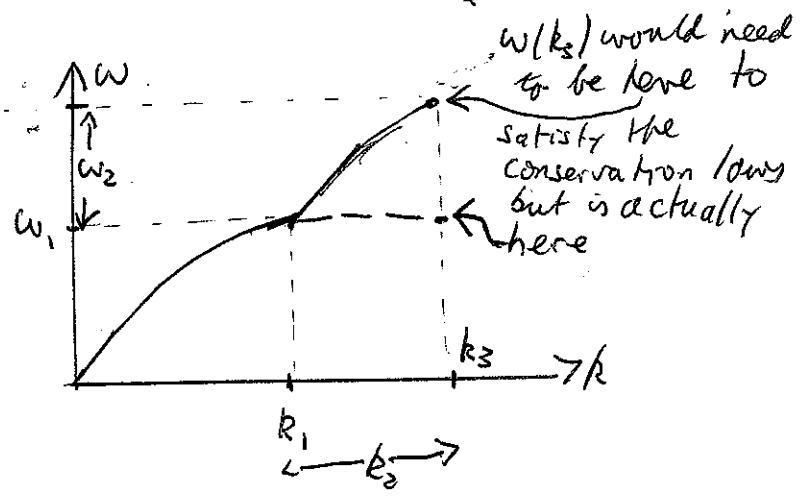 ω(k₃) would need
to be here to
satisfy the
conservation laws
but is actually
here
ω
ω₂
ω₁
k₃
k
k₁
k₂